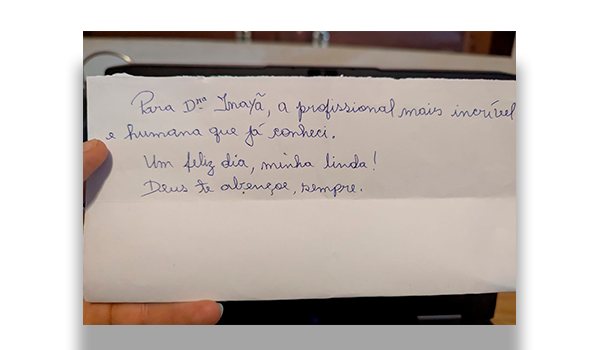 Para Dna Inayã, a profissional mais incrível
e humana que já conheci.
Um feliz dia, minha linda!
Deus te abençoe, sempre.